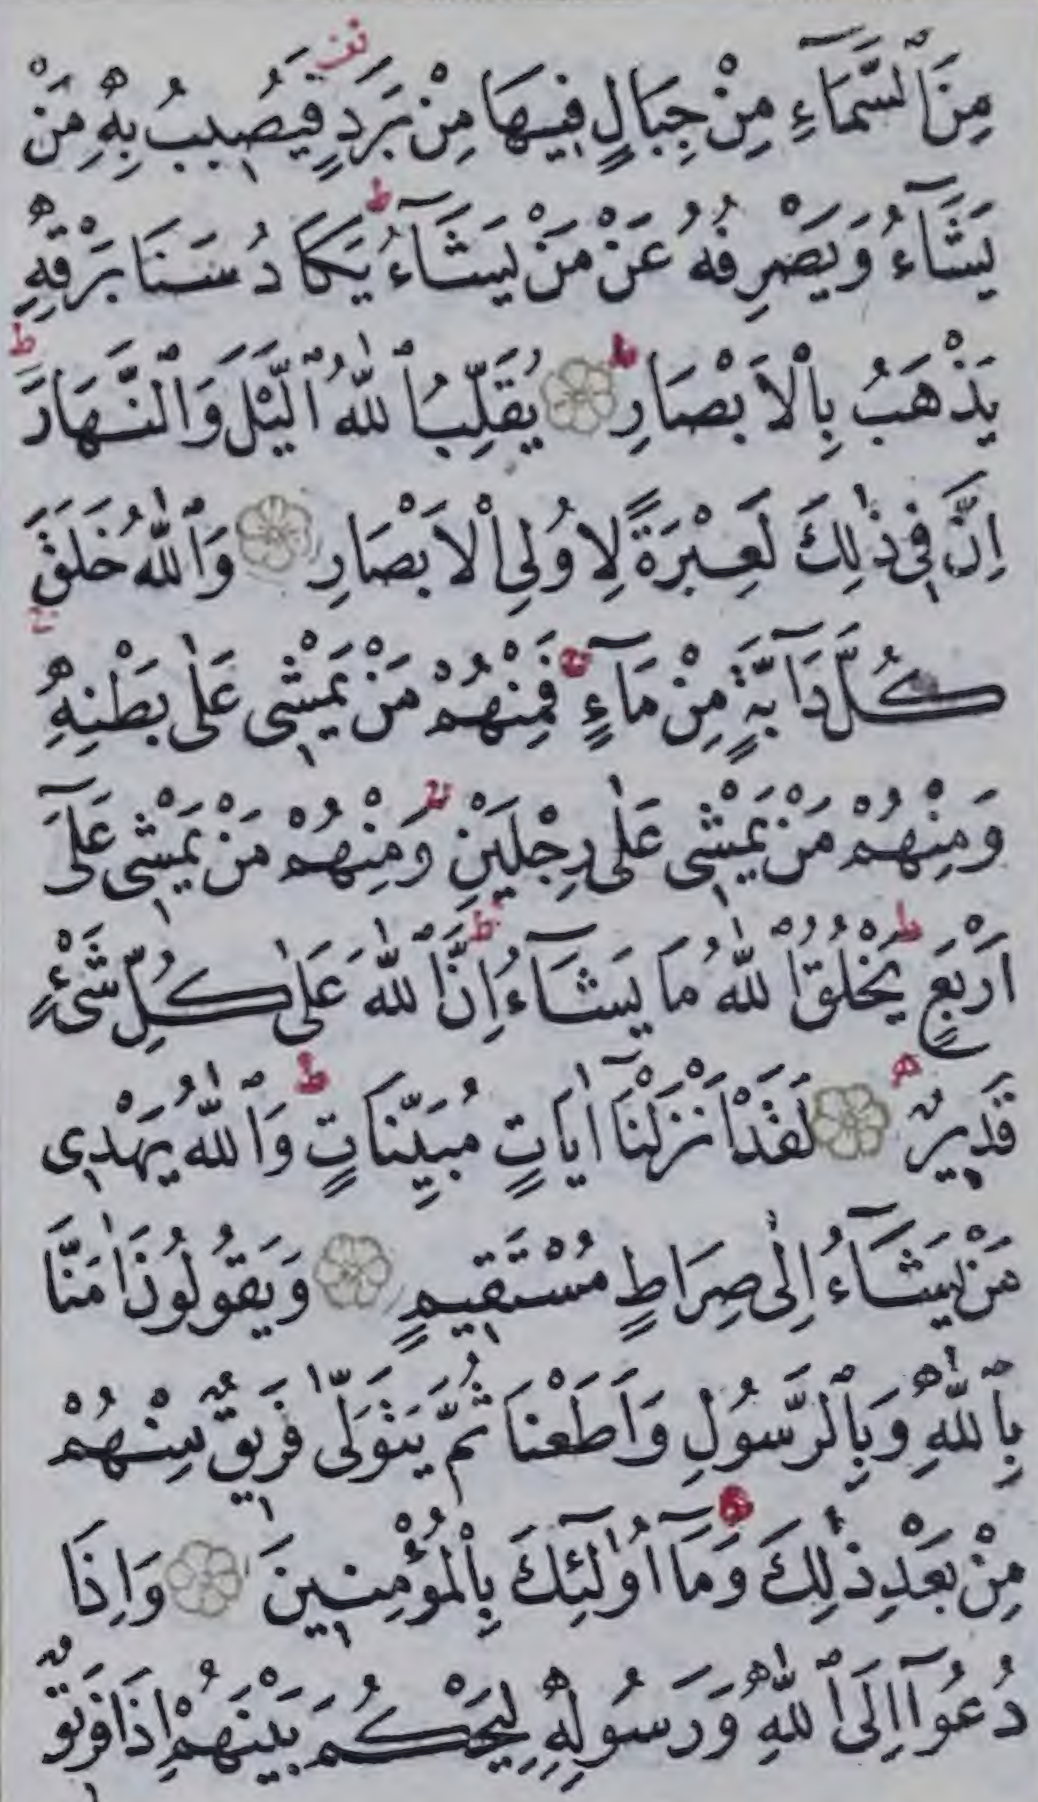 مِنَ ٱلسَّمَٓاءِ مِنْ جِبَالٍ ف۪يهَا مِنْ بَرَدٍ فَيُص۪يبُ بِه۪ مَنْ
يَشَٓاءُ وَيَصْرِفُهُ عَنْ مَنْ يَشَٓاءُ ط يَكَادُ سَنَا بَرْقِه۪
يَذْهَبُ بِٱلْاَبْصَارِ ط يُقَلِّبُ ٱللّٰهُ ٱلَّيْلَ وَٱلنَّهَارَ ط
اِنَّ ف۪ي ذٰلِكَ لَعِبْرَةً لِاُولِي ٱلْاَبْصَارِ وَٱللّٰهُ خَلَقَ
كُلَّ دَٓابَّةٍ مِنْ مَٓاءٍ فَمِنْهُمْ مَنْ يَمْش۪ي عَلٰى بَطْنِه۪
وَمِنْهُمْ مَنْ يَمْش۪ي عَلٰى رِجْلَيْنِ وَمِنْهُمْ مَنْ يَمْش۪ي عَلٰٓى
اَرْبَعٍ ط يَخْلُقُ ٱللّٰهُ مَا يَشَٓاءُ ط اِنَّ ٱللّٰهَ عَلٰى كُلِّ شَيْءٍ
قَد۪يرٌ لَقَدْ اَنْزَلْنَٓا اٰيَاتٍ مُبَيِّنَاتٍ ط وَٱللّٰهُ يَهْد۪ي
مَنْ يَشَٓاءُ اِلٰى صِرَاطٍ مُسْتَق۪يمٍ وَيَقُولُونَ اٰمَنَّا
بِٱللّٰهِ وَبِٱلرَّسُولِ وَاَطَعْنَا ثُمَّ يَتَوَلّٰى فَر۪يقٌ مِنْهُمْ
مِنْ بَعْدِ ذٰلِكَ وَمَٓا اُو۬لٰٓئِكَ بِٱلْمُؤْمِن۪ينَ وَاِذَا
دُعُٓوا اِلَى ٱللّٰهِ وَرَسُولِه۪ لِيَحْكُمَ بَيْنَهُمْ اِذَا فَر۪يقٌ